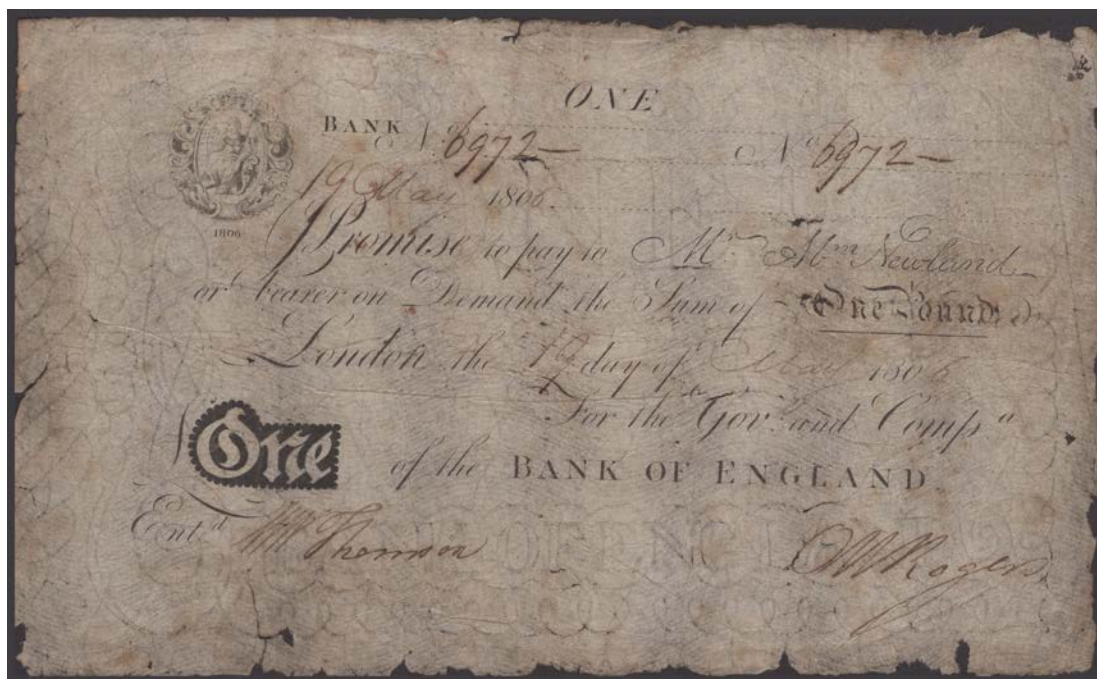 ONE
BANK No. 6972— No. 6972—
19 May 1806.
1806
I Promise to pay to Mr. Abm Newland
or bearer on Demand the Sum of One Pound
London the 19 day of May 1806
For the Govr. and Compa.
One of the BANK OF ENGLAND
Entd. Thomson Rogers